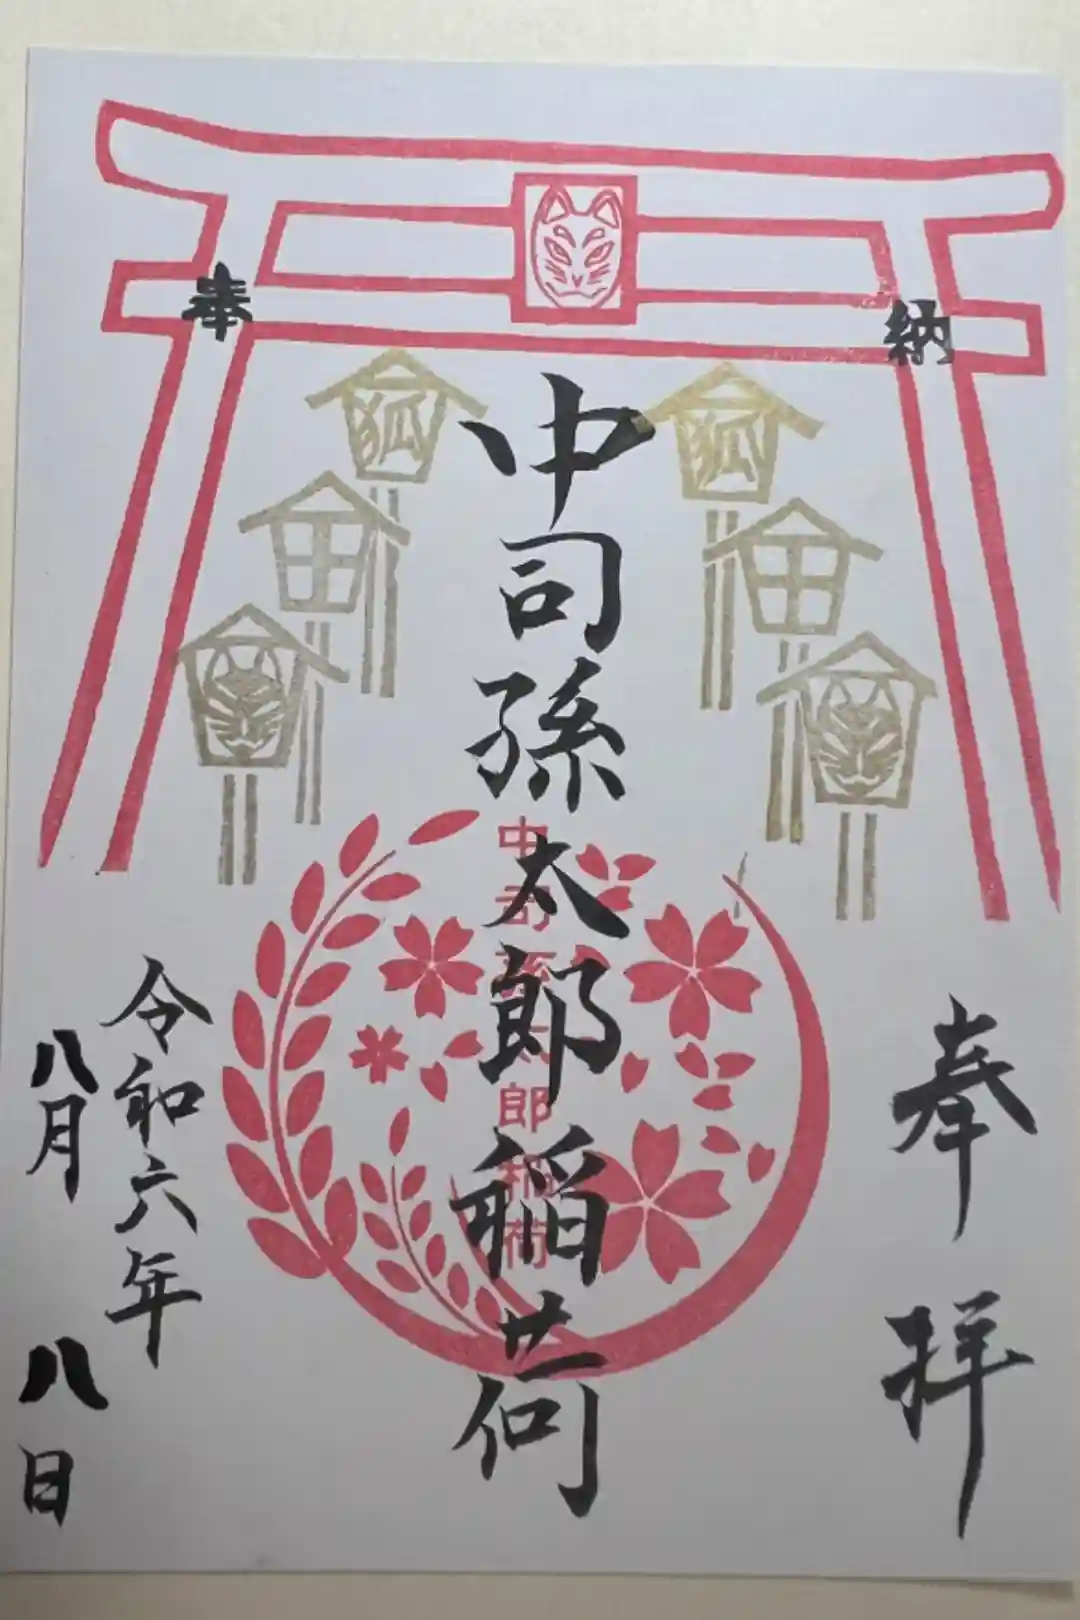 奉 納
奉拝
中司孫太郎稲荷
中司孫太郎稲荷
令和六年
八月八日
狐
田
狐
田